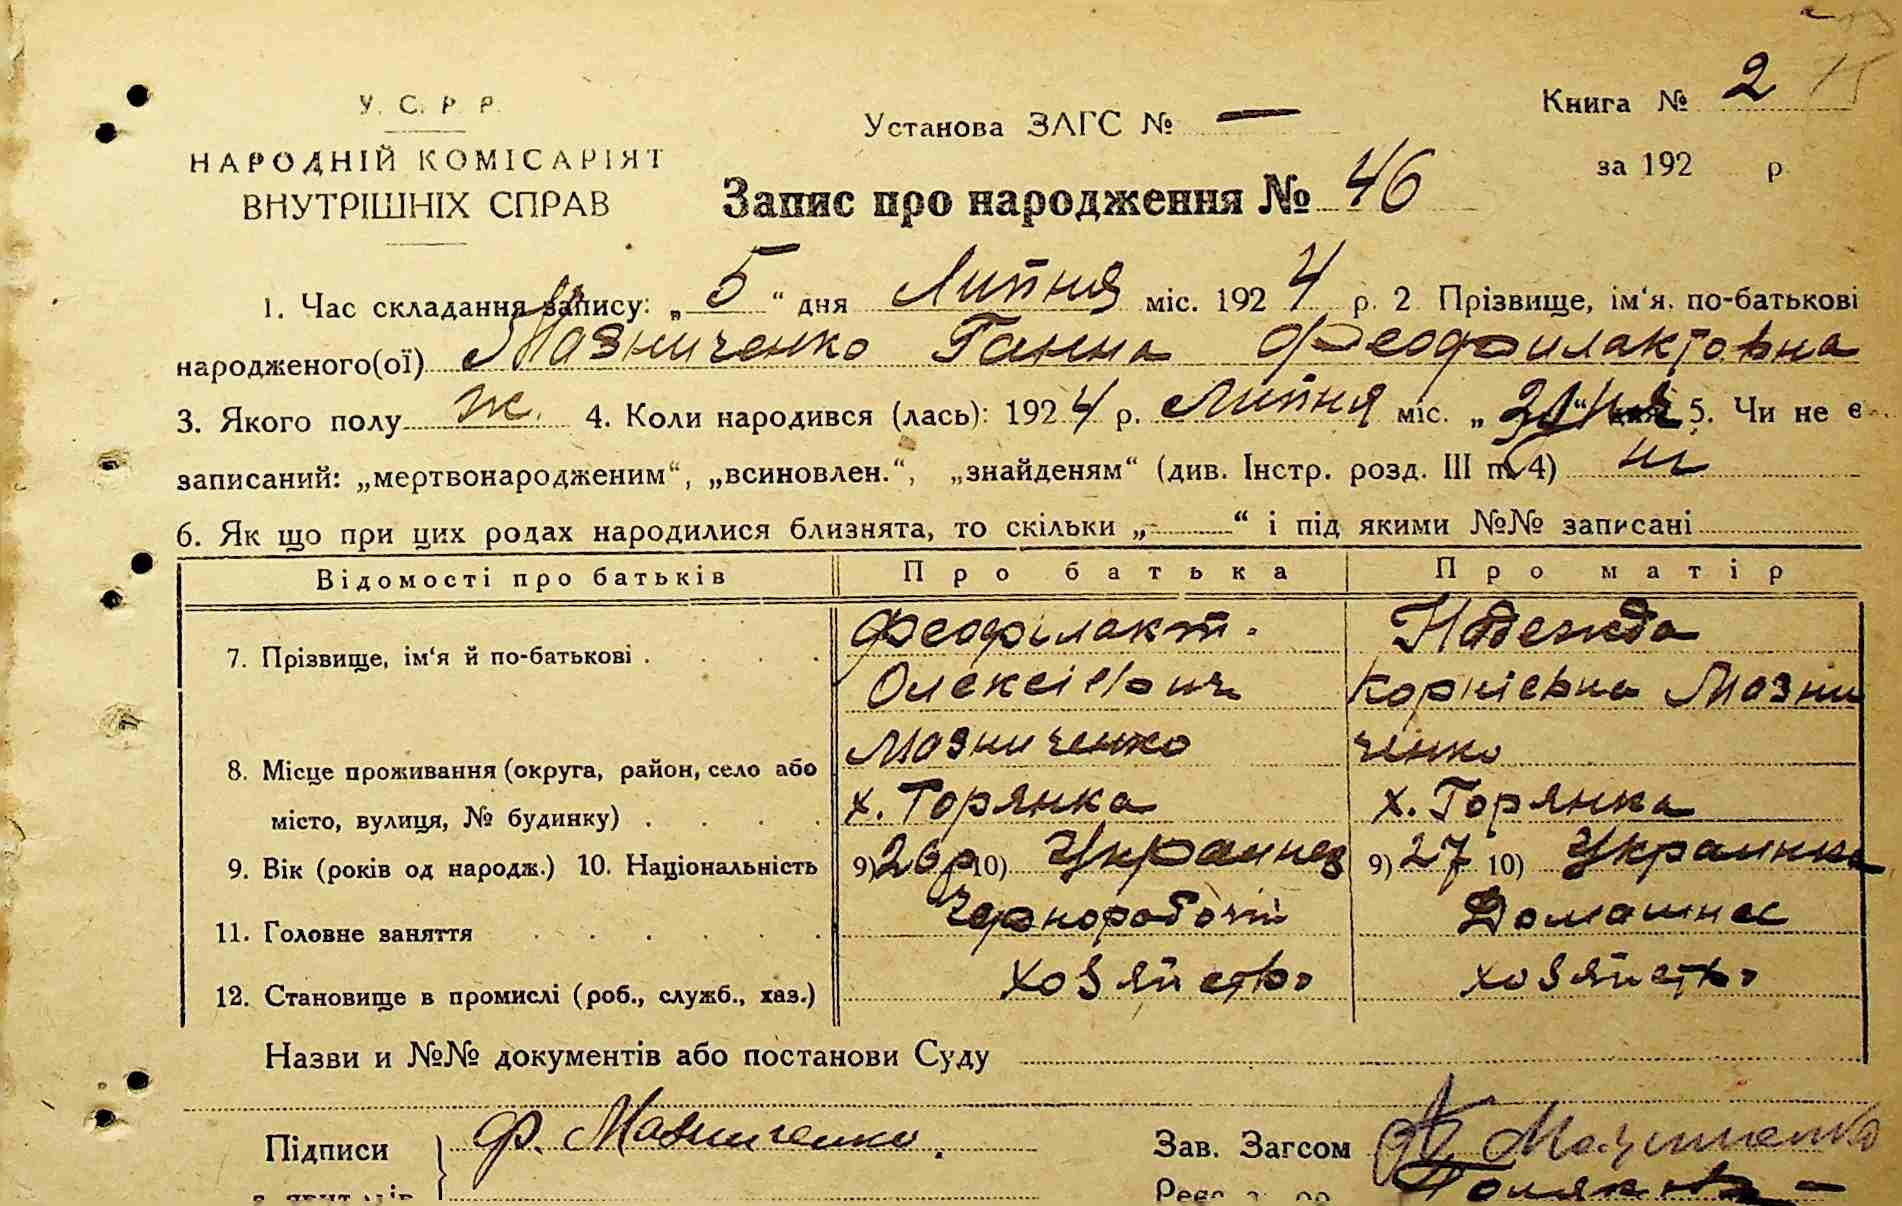 Книга № 2
У. С. Р. Р.
Установа ЗАГС № —
за 192 р.
НАРОДНІЙ КОМІСАРІЯТ
ВНУТРІШНІХ СПРАВ
Запис про народження № 46
1. Час складання запису: „ 5 “ дня Липня міс. 192 4 р. 2 Прізвище, ім‘я, по-батькові
народженого(ої) Мазниченко Ганна Феофилактовна
3. Якого полу ж. 4. Коли народився (лась): 192 4 р. Липня міс. „ “ дня 5. Чи не є
записаний: „мертвонародженим“, „всиновлен.“, „знайденям“ (див. Інстр. розд. III п. 4) ні
6. Як що при цих родах народилися близнята, то скільки „ “ і під якими №№ записані
Відомості про батьків Про батька Про матір
7. Прізвище, ім‘я й по-батькові . . . . Феофілакт. Надежда
Олексієвич Корнієвна Мазни
Мазниченко ченко
8. Місце проживання (округа, район, село або
місто, вулиця, № будинку) . . . . х. Горянка х. Горянка
9. Вік (років од народж.) 10. Національність 9) 26р 10) Украинец 9) 27 10) Украинка
11. Головне заняття . . . . . . Домашнес
12. Становище в промислі (роб., служб., хаз.) хозяйство хозяйство
Назви и №№ документів або постанови Суду
Підписи Ф. Мазниченко. Зав. Загсом